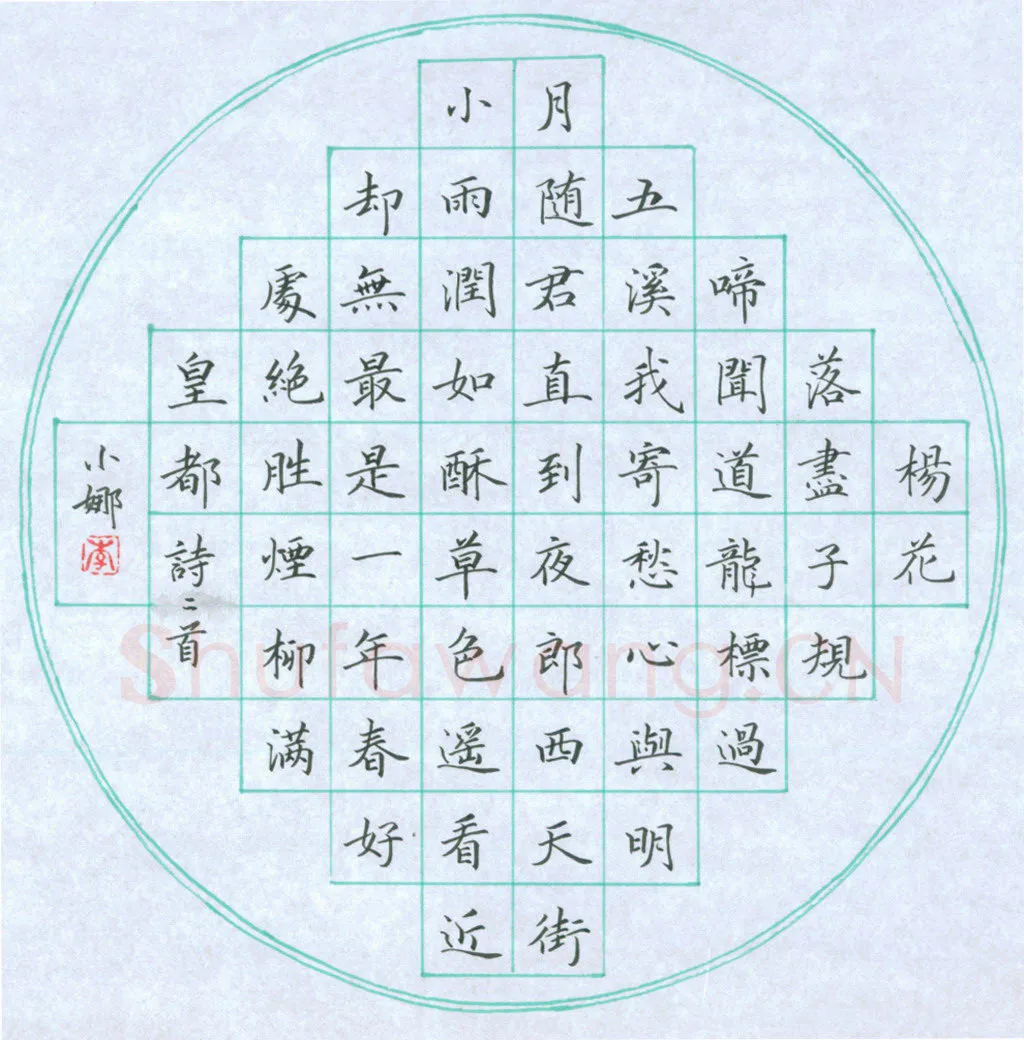 楊花
落盡子規
啼聞道龍標過
五溪我寄愁心與明
月随君直到夜郎西天街
小雨潤如酥草色遥看近
却無最是一年春好
處絶胜煙柳满
皇都詩二首
小娜
李
Shufawang.CN